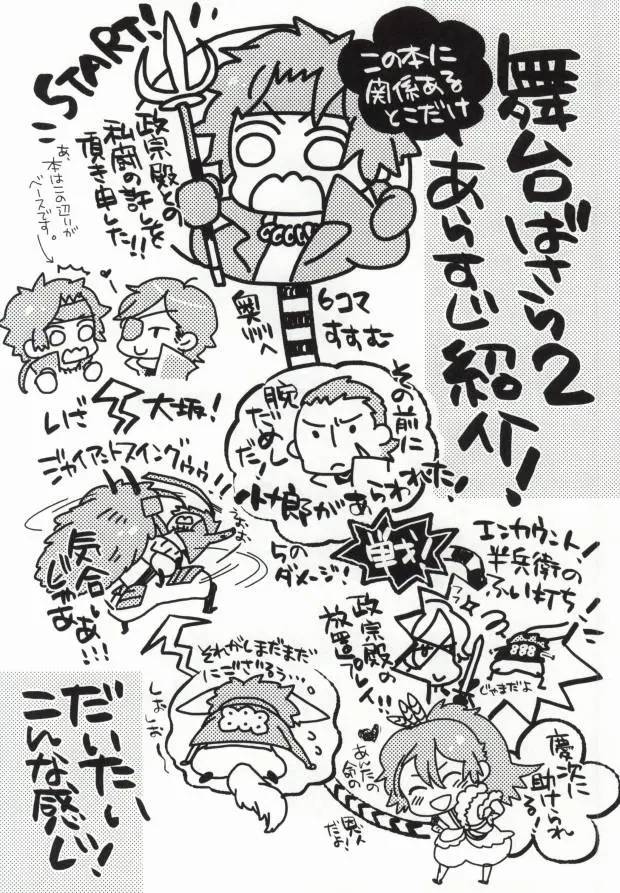 舞台ばさら2
あらすじ紹介!
この本に
関係ある
とこだけ
START!
政宗殿との
私闘の許しを
頂き申した!!
あ、
本はこの辺りが
ベースです。
6コマ
すすむ
奥州へ
その前に
腕だめしだ!
小十郎があらわれた!
いざ
大坂!
戦!
5のダメージ!
エンカウント!
半兵衛の
ふい打ち!
じゃまだよ
政宗殿の
放置プレイ!!
ジャイアントスイングゥゥ!!
気合じゃあ
あぁ!!!
それがしまだまだ
にござるぅ…
しおしお
慶次に
助けられる!
あんたの
命の
恩人
だよ!
だいたい
こんな感じ!